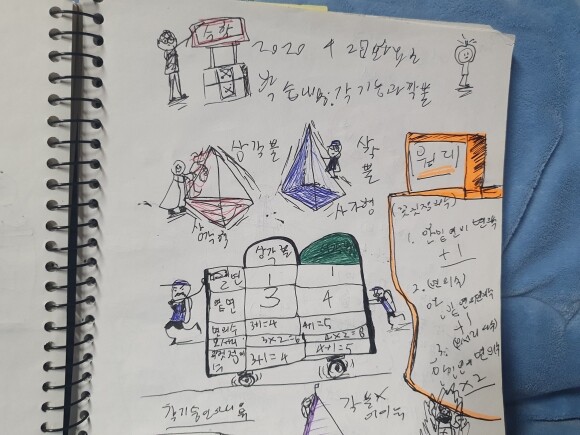 수학
2020 4 2
학습내용: 각기둥과 각뿔
삼각뿔
삼각형
사각뿔
사각형
삼각뿔
밑면 1 1
옆면 3 4
면의 수 3+1=4 4+1=5
모서리 3×2=6 4×2=8
꼭짓점의 수 3+1=4 4+1=5
원리
(꼭짓점의 수)
1. 한 밑면의 변의 수
+1
2. (면의 수)
한 밑면의 변의 수
+1
3. (모서리의 수)
한 밑면의 변의 수
×2
각뿔